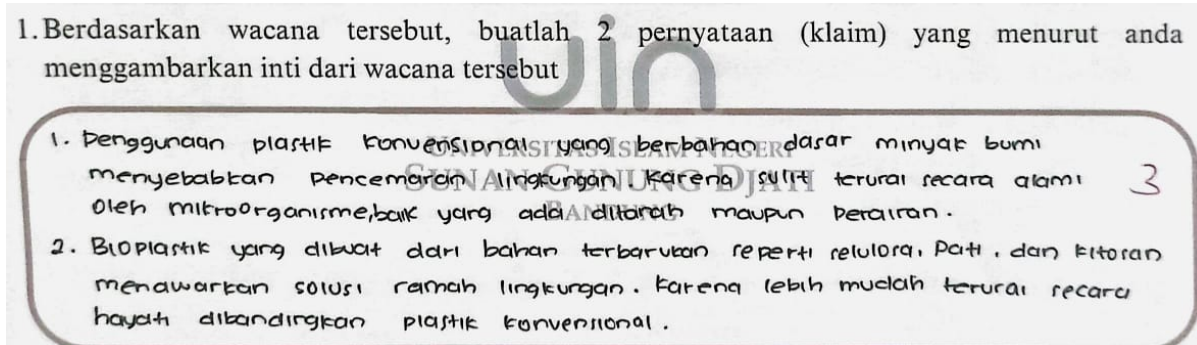 1. Berdasarkan wacana tersebut, buatlah 2 pernyataan (klaim) yang menurut anda
menggambarkan inti dari wacana tersebut
uin
UNIVERSITAS ISLAM NEGERI
SUNAN GUNUNG DJATI
BANDUNG
1. Penggunaan plastik konvensional yang berbahan dasar minyak bumi
menyebabkan pencemaran lingkungan karena sulit terurai secara alami
oleh mikroorganisme, baik yang ada ditanah maupun perairan.
3
2. Bioplastik yang dibuat dari bahan terbarukan seperti selulosa, pati, dan kitosan
menawarkan solusi ramah lingkungan. karena lebih mudah terurai secara
hayati dibandingkan plastik konvensional.